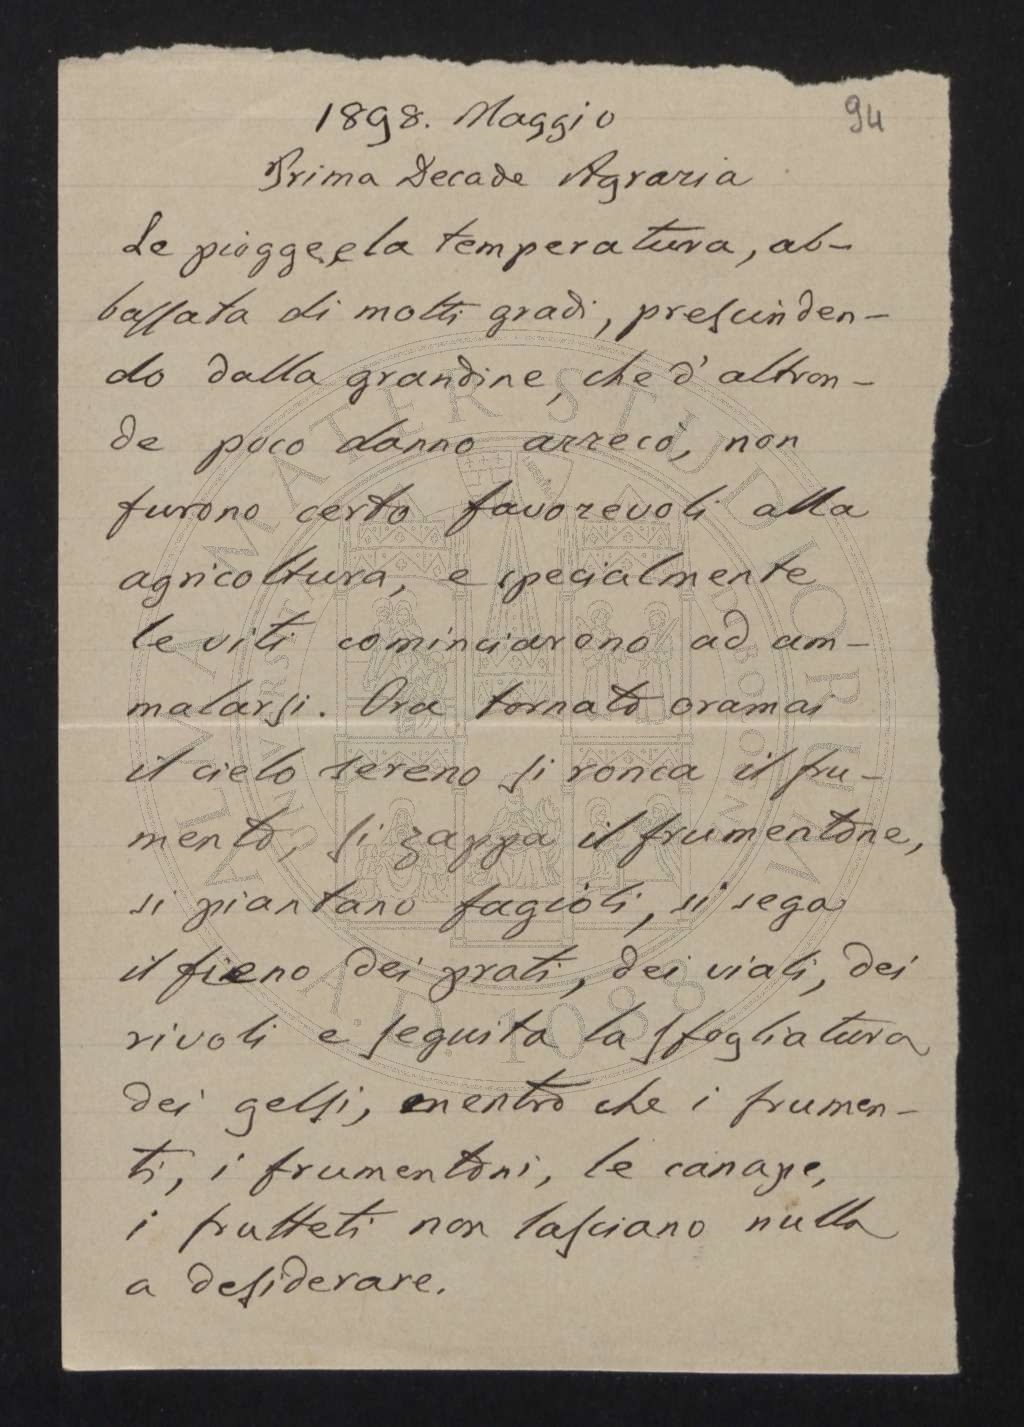 1898. Maggio
94
Prima Decade Agraria
Le piogge, e la temperatura, ab-
bassata di molti gradi, prescinden-
do dalla grandine, che d'altron-
de poco danno arrecò, non
furono certo favorevoli alla
agricoltura, e specialmente
le viti cominciarono ad am-
malarsi. Ora tornato oramai
il cielo sereno si ronca il fru-
mento, si zappa il frumentone,
si piantano fagioli, si sega
il fieno dei prati, dei viali, dei
rivoli e seguita la sfogliatura
dei gelsi, mentro che i frumen-
ti, i frumentoni, le canape,
i frutteti non lasciano nulla
a desiderare.
ALMA MATER STUDIORUM
A.D. 1088